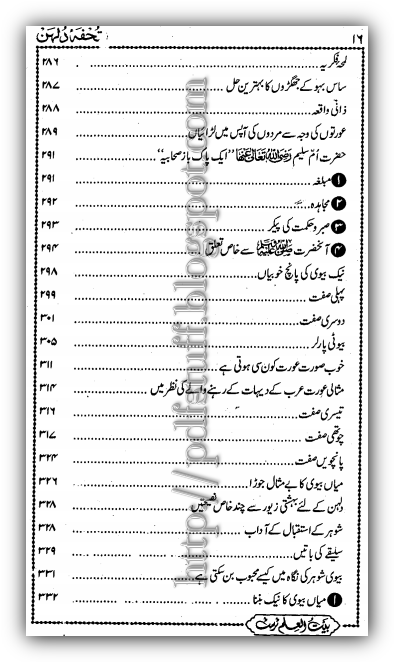 ۱۶ تحفۂ دُلہن
لمحۂ فکریہ ۲۸۶
ساس بہو کے جھگڑوں کا بہترین حل ۲۸۷
ذاتی واقعہ ۲۸۸
عورتوں کی وجہ سے مردوں کی آپس میں لڑائیاں ۲۸۹
حضرت اُمّ سلیم رَضِيَ اللّٰهُ تَعَالٰی عَنْهَا ”ایک پاک باز صحابیہ“ ۲۹۱
❶ مبلغہ ۲۹۱
❷ مجاہدہ ۲۹۲
❸ صبر و حکمت کی پیکر ۲۹۳
❹ آنحضرت ﷺ سے خاص تعلق ۲۹۴
نیک بیوی کی پانچ خوبیاں ۲۹۸
پہلی صفت ۲۹۹
دوسری صفت ۳۰۱
بیوٹی پارلر ۳۰۵
خوب صورت عورت کون سی ہوتی ہے ۳۱۱
مثالی عورت عرب کے دیہات کے رہنے والے کی نظر میں ۳۱۴
تیسری صفت ۳۱۶
چوتھی صفت ۳۱۷
پانچویں صفت ۳۲۴
میاں بیوی کا بے مثال جوڑا ۳۲۶
دلہن کے لئے بہشتی زیور سے چند خاص نصیحتیں ۳۲۸
شوہر کے استقبال کے آداب ۳۲۸
سلیقے کی باتیں ۳۲۹
بیوی شوہر کی نگاہ میں کیسے محبوب بن سکتی ہے ۳۳۱
❶ میاں بیوی کا نیک بننا ۳۳۲
بیت العلم ٹرسٹ
http://pdfstuff.blogspot.com